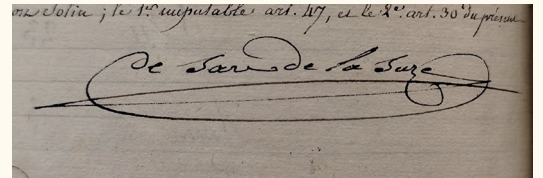 Solin ; le 1er imputable art. 47, et le 2e. art. 30 du présent
de la Suze